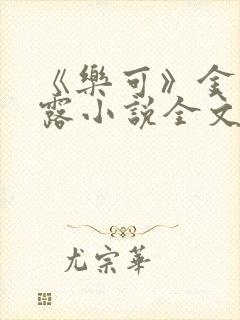 《樂可》金
露小説全文
尤宗華